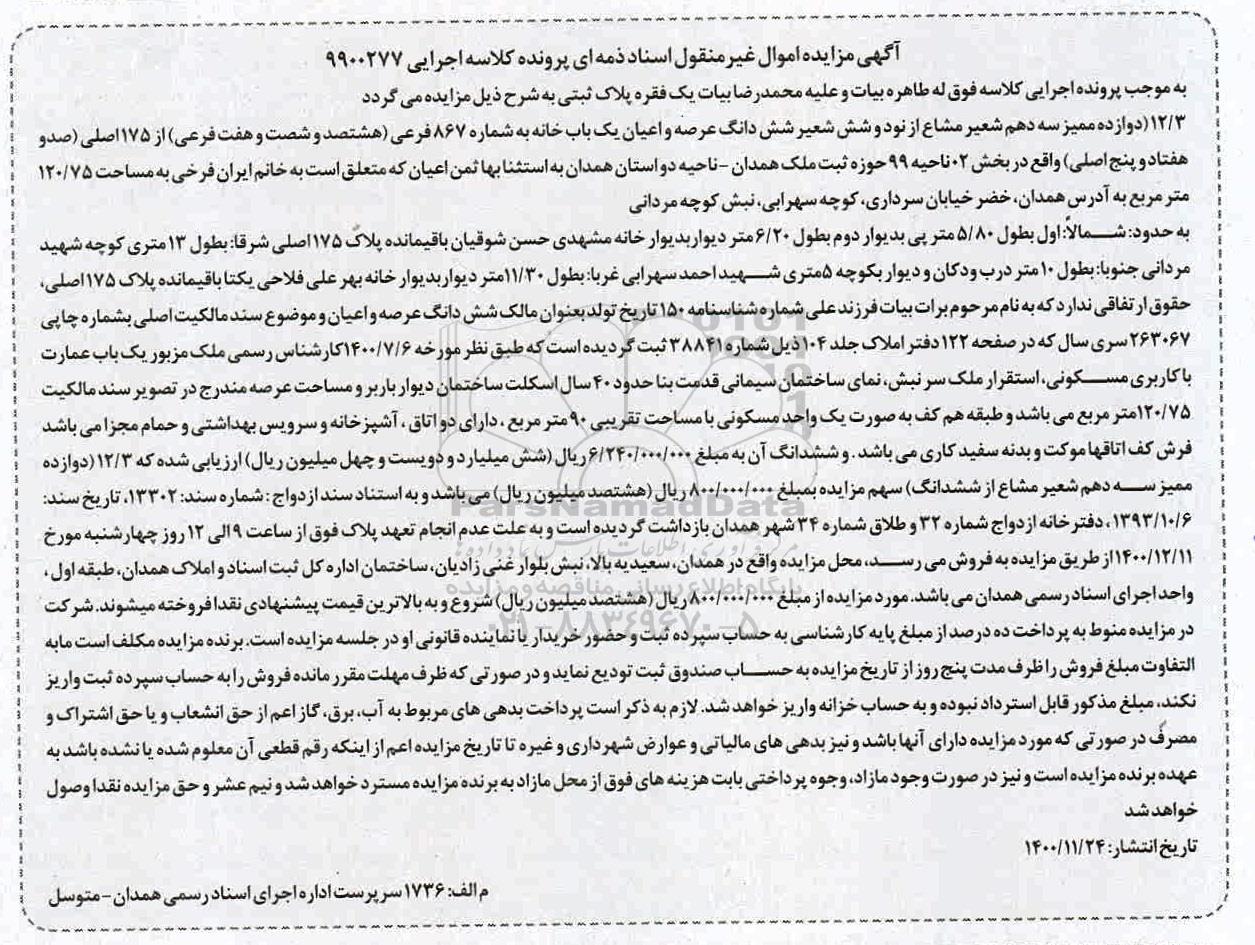 آگهی مزایده اموال غیر منقول اسناد ذمه ای پرونده کلاسه اجرایی ۹۹۰۰۲۷۷
به موجب پرونده اجرایی کلاسه فوق له طاهره بیات و علیه محمدرضا بیات یک فقره پلاک ثبتی به شرح ذیل مزایده می گردد
۱۲/۳ (دوازده ممیز سه دهم شعیر مشاع از نود و شش شعیر شش دانگ عرصه و اعیان یک باب خانه به شماره ۸۶۷ فرعی (هشتصد و شصت و هفت فرعی) از ۱۷۵ اصلی (صدو
هفتاد و پنج اصلی) واقع در بخش ۰۲ ناحیه ۹۹ حوزه ثبت ملک همدان - ناحیه دو استان همدان به استثنا بها ثمن اعیان که متعلق است به خانم ایران فرخی به مساحت ۱۲۰/۷۵
متر مربع به آدرس همدان، خضر خیابان سرداری، کوچه سهرابی، نبش کوچه مردانی
به حدود: شمالاً: اول بطول ۵/۸۰ متر پی بدیوار دوم بطول ۶/۲۰ متر دیواربدیوار خانه مشهدی حسن شوقیان باقیمانده پلاک ۱۷۵ اصلی شرقا: بطول ۱۳ متری کوچه شهید
مردانی جنوبا: بطول ۱۰ متر درب ودکان و دیوار بکوچه ۵متری شهید احمد سهرابی غربا: بطول ۱۱/۳۰متر دیواربدیوار خانه بهر علی فلاحی یکتا باقیمانده پلاک ۱۷۵ اصلی،
حقوق ارتفاقی ندارد که به نام مرحوم برات بیات فرزند علی شماره شناسنامه ۱۵۰ تاریخ تولد بعنوان مالک شش دانگ عرصه و اعیان و موضوع سند مالکیت اصلی بشماره چاپی
۲۶۳۰۶۷ سری سال که در صفحه ۱۲۲ دفتر املاک جلد ۱۰۴ ذیل شماره ۳۸۸۴۱ ثبت گردیده است که طبق نظر مورخه ۱۴۰۰/۷/۶ کارشناس رسمی ملک مزبور یک باب عمارت
با کاربری مسکونی، استقرار ملک سر نبش، نمای ساختمان سیمانی قدمت بنا حدود ۴۰ سال اسکلت ساختمان دیوار باربر و مساحت عرصه مندرج در تصویر سند مالکیت
۱۲۰/۷۵متر مربع می باشد و طبقه هم کف به صورت یک واحد مسکونی با مساحت تقریبی ۹۰ متر مربع ، دارای دو اتاق ، آشپزخانه و سرویس بهداشتی و حمام مجزا می باشد
فرش کف اتاقها موکت و بدنه سفید کاری می باشد . و ششدانگ آن به مبلغ ۶/۲۴۰/۰۰۰/۰۰۰ ریال (شش میلیارد و دویست و چهل میلیون ریال) ارزیابی شده که ۱۲/۳ (دوازده
ممیز سه دهم شعیر مشاع از ششدانگ) سهم مزایده بمبلغ ۸۰۰/۰۰۰/۰۰۰ ریال (هشتصد میلیون ریال) می باشد و به استناد سند ازدواج : شماره سند: ۱۳۳۰۲، تاریخ سند:
۱۳۹۳/۱۰/۶ ، دفترخانه ازدواج شماره ۳۲ و طلاق شماره ۳۴ شهر همدان بازداشت گردیده است و به علت عدم انجام تعهد پلاک فوق از ساعت ۹ الی ۱۲ روز چهارشنبه مورخ
۱۴۰۰/۱۲/۱۱ از طریق مزایده به فروش می رسد، محل مزایده واقع در همدان، سعیدیه بالا، نبش بلوار غنی زادیان، ساختمان اداره کل ثبت اسناد و املاک همدان، طبقه اول ،
واحد اجرای اسناد رسمی همدان می باشد. مورد مزایده از مبلغ ۸۰۰/۰۰۰/۰۰۰ ریال (هشتصد میلیون ریال) شروع و به بالاترین قیمت پیشنهادی نقدا فروخته میشوند. شرکت
در مزایده منوط به پرداخت ده درصد از مبلغ پایه کارشناسی به حساب سپرده ثبت و حضور خریدار یا نماینده قانونی او در جلسه مزایده است. برنده مزایده مکلف است مابه
التفاوت مبلغ فروش را ظرف مدت پنج روز از تاریخ مزایده به حساب صندوق ثبت تودیع نماید و در صورتی که ظرف مهلت مقرر مانده فروش را به حساب سپرده ثبت واریز
نکند، مبلغ مذکور قابل استرداد نبوده و به حساب خزانه واریز خواهد شد. لازم به ذکر است پرداخت بدهی های مربوط به آب، برق، گاز اعم از حق انشعاب و یا حق اشتراک و
مصرف در صورتی که مورد مزایده دارای آنها باشد و نیز بدهی های مالیاتی و عوارض شهرداری و غیره تا تاریخ مزایده اعم از اینکه رقم قطعی آن معلوم شده یا نشده باشد به
عهده برنده مزایده است و نیز در صورت وجود مازاد، وجوه پرداختی بابت هزینه های فوق از محل مازاد به برنده مزایده مسترد خواهد شد و نیم عشر و حق مزایده نقدا وصول
خواهد شد
تاریخ انتشار: ۱۴۰۰/۱۱/۲۴
م الف: ۱۷۳۶ سرپرست اداره اجرای اسناد رسمی همدان - متوسل
ParsNamadData
پایگاه اطلاع رسانی مناقصه و مزایده
۰۲۱-۸۸۳۴۹۶۷۰-۵